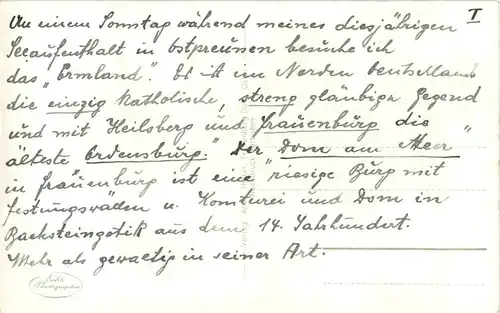 I
An einem Sonntag während meines diesjährigen
Seeaufenthalt in Ostpreussen besuche ich
das "Ermland". Es ist im Norden Deutschlands
die einzig katholische, streng gläubige Gegend
und mit Heilsberg und Frauenburg die
älteste Ordensburg." Der Dom am Meer"
in Frauenburg ist eine "riesige Burg mit
Festungswällen u. Komturei und Dom in
Backsteingotik aus dem 14. Jahrhundert.
Mehr als gewaltig in seiner Art.
Echte
Photographie